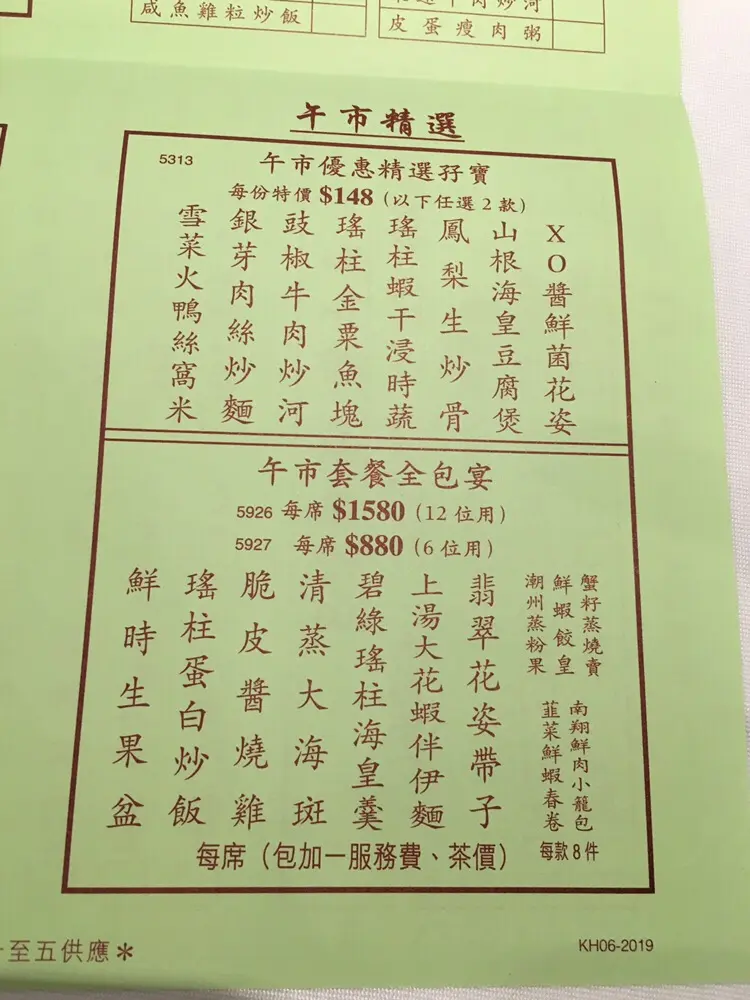 咸魚雞粒炒飯
皮蛋瘦肉粥
午市精選
5313
午市優惠精選孖寶
每份特價 $148 (以下任選2款)
XO醬鮮菌花姿
山根海皇豆腐煲
鳳梨生炒骨
瑤柱蝦干浸時蔬
瑤柱金粟魚塊
豉椒牛肉炒河
銀芽肉絲炒麵
雪菜火鴨絲窩米
午市套餐全包宴
5926 每席 $1580 (12位用)
5927 每席 $880 (6位用)
蟹籽蒸燒賣
鮮蝦餃皇
潮州蒸粉果
南翔鮮肉小籠包
韮菜鮮蝦春卷
每款8件
翡翠花姿帶子
上湯大花蝦伴伊麵
碧綠瑤柱海皇羹
清蒸大海斑
脆皮醬燒雞
瑤柱蛋白炒飯
鮮時生果盆
每席（包加一服務費、茶價）
至五供應*
KH06-2019